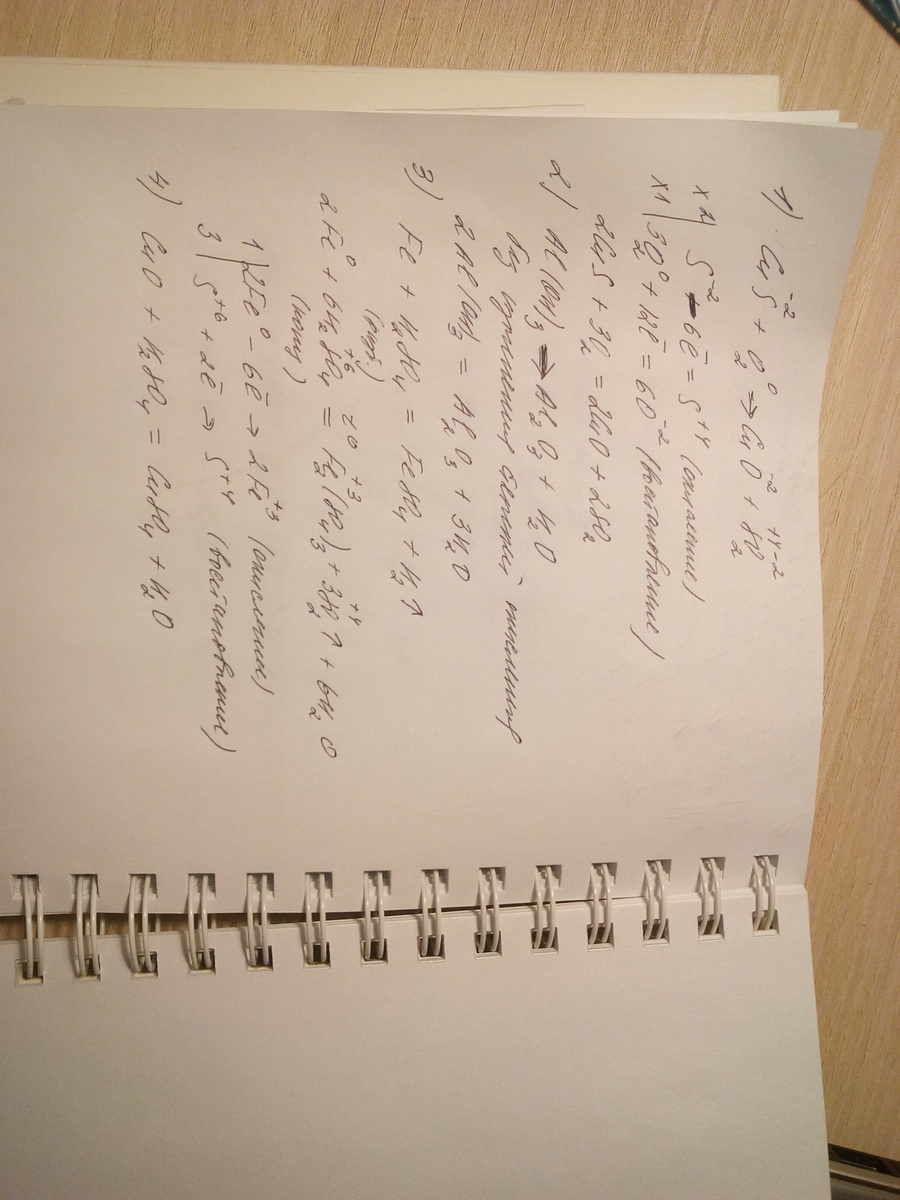 1) CuS⁻² + O₂⁰ → CuO⁻² + S⁺⁴O₂⁻²
x2 | S⁻² - 6ē = S⁺⁴ (окисление)
x1 | 3O₂⁰ + 12ē = 6O⁻² (восстановление)
2CuS + 3O₂ = 2CuO + 2SO₂
2) Al(OH)₃ → Al₂O₃ + H₂O
без изменения степеней окисления
2Al(OH)₃ = Al₂O₃ + 3H₂O
3) Fe + H₂SO₄ = FeSO₄ + H₂↑
(разб)
2Fe⁰ + 6H₂S⁺⁶O₄ = t⁰ Fe₂⁺³(SO₄)₃ + 3S⁺⁴O₂↑ + 6H₂O
(конц)
1 | 2Fe⁰ - 6ē → 2Fe⁺³ (окисление)
3 | S⁺⁶ + 2ē → S⁺⁴ (восстановление)
4) CuO + H₂SO₄ = CuSO₄ + H₂O